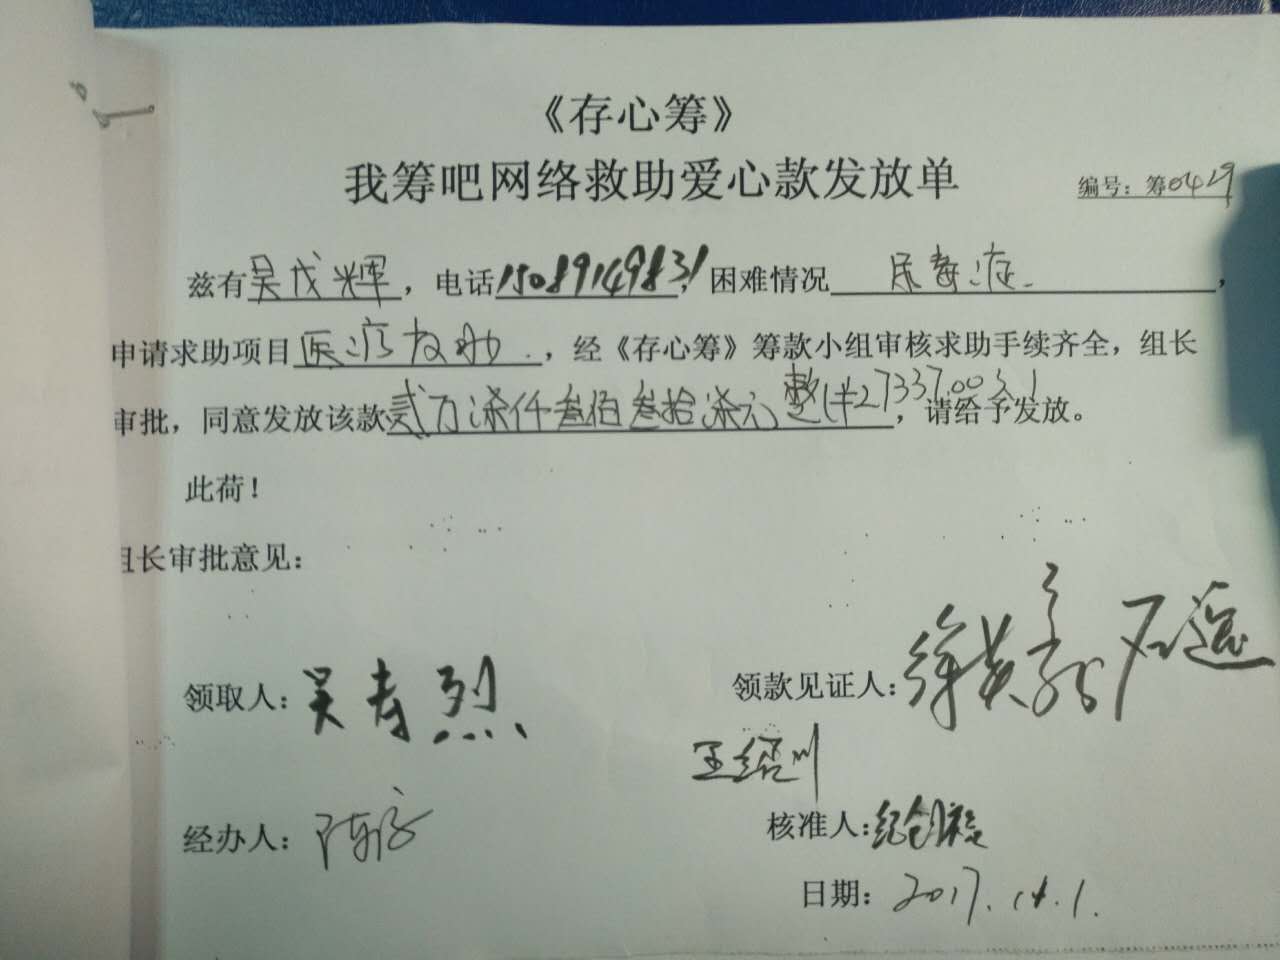 《存心筹》
我筹吧网络救助爱心款发放单
编号：筹0429
兹有吴戊辉，电话15089149831，困难情况尿毒症，
申请求助项目医疗救助，经《存心筹》筹款小组审核求助手续齐全，组长
审批，同意发放该款贰万柒仟叁佰叁拾柒元整(¥27337.00元)，请给予发放。
此荷！
组长审批意见：
领取人：吴寿烈 领款见证人：徐 石遥
王绍川
经办人：陈 核准人：纪
日期：2017.11.1.